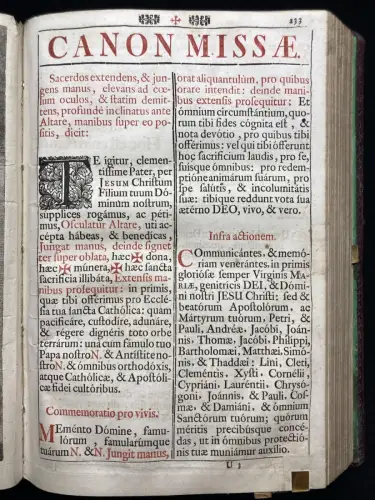 ✠ 233
CANON MISSÆ.
Sacerdos extendens, & jun-
gens manus, elevans ad cœ-
lum oculos, & statim demit-
tens, profundè inclinatus ante
Altare, manibus super eo po-
sitis, dicit:
TE igitur, clemen-
tissime Pater, per
JESUM Christum
Filium tuum Dó-
minum nostrum,
supplices rogámus, ac péti-
mus, Osculatur Altare, uti ac-
cépta hábeas, & benedícas,
Jungat manus, deinde signet
ter super oblata, hæc ✠ dona,
hæc ✠ múnera, hæc ✠ sancta
sacrificia illibáta, Extensis ma-
nibus prosequitur: in primis,
quæ tibi offérimus pro Ecclé-
sia tua sancta Cathólica: quam
pacificáre, custodire, adunáre,
& régere dignéris toto orbe
terrárum: unà cum fámulo tuo
Papa nostro N. & Antístite no-
stro N. & ómnibus orthodóxis,
atque Cathólicæ, & Apostóli-
cæ fidei cultóribus.
Commemoratio pro vivis.
MEménto Dómine, famu-
lórum, famularúmque
tuárum N. & N. Jungit manus,
orat aliquantulùm, pro quibus
orare intendit: deinde mani-
bus extensis prosequitur: Et
ómnium circumstántium, quo-
rum tibi fides cógnita est, &
nota devótio, pro quibus tibi
offérimus: vel qui tibi ófferunt
hoc sacrifícium laudis, pro se,
suísque ómnibus: pro redem-
ptióne animárum suárum, pro
spe salútis, & incolumitátis
suæ: tibíque reddunt vota sua
ætérno DEO, vivo, & vero.
Infra actionem.
COmmunicántes, & memó-
riam venerántes, in primis
gloriósæ semper Virginis MA-
RIÆ, genitrícis DEI, & Dómi-
ni nostri JESU Christi: sed &
beatórum Apostolórum, ac
Mártyrum tuórum, Petri, &
Pauli, Andréæ, Jacóbi, Joán-
nis, Thomæ, Jacóbi, Philíppi,
Bartholomæi, Matthæi, Simó-
nis, & Thaddæi: Lini, Cleti,
Cleméntis, Xysti, Cornélii,
Cypriáni, Lauréntii, Chrysó-
goni, Joánnis, & Pauli, Cos-
mæ, & Damiáni, & ómnium
Sanctórum tuórum; quorum
méritis precibúsque concé-
das, ut in ómnibus protectió-
nis tuæ muniámur auxílio.